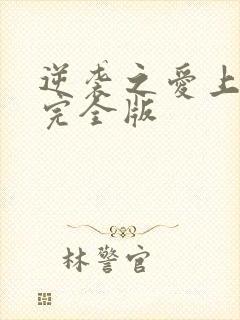 逆袭之爱上
完全版
林警官